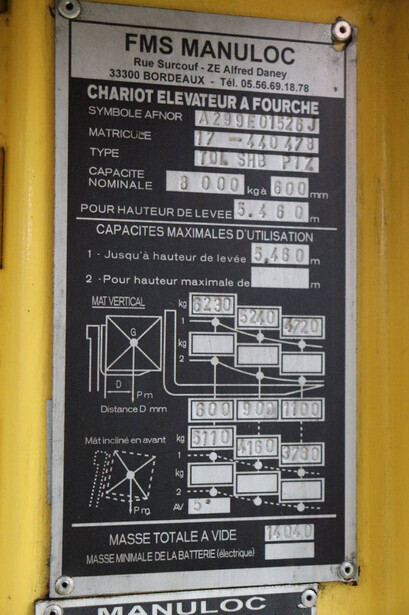 FMS MANULOC
Rue Surcouf - ZE Alfred Daney
33300 BORDEAUX - Tél. 05.56.69.18.78
CHARIOT ELEVATEUR A FOURCHE
SYMBOLE AFNOR A299E01526J
MATRICULE 17-440478
TYPE
CAPACITE NOMINALE 8 000 kg à 600 mm
POUR HAUTEUR DE LEVEE 5.460 m
CAPACITES MAXIMALES D'UTILISATION
1 - Jusqu'à hauteur de levée 5,460 m
2 - Pour hauteur maximale de m
MAT VERTICAL
kg 6230 5240 4720
1
kg
2
G
D
P m
Distance D mm 600 900 1100
Mât incliné en avant
kg 5110 4160 3780
1
kg
2
P m
AV 5°
MASSE TOTALE A VIDE 14040
MASSE MINIMALE DE LA BATTERIE (électrique)
MANULOC